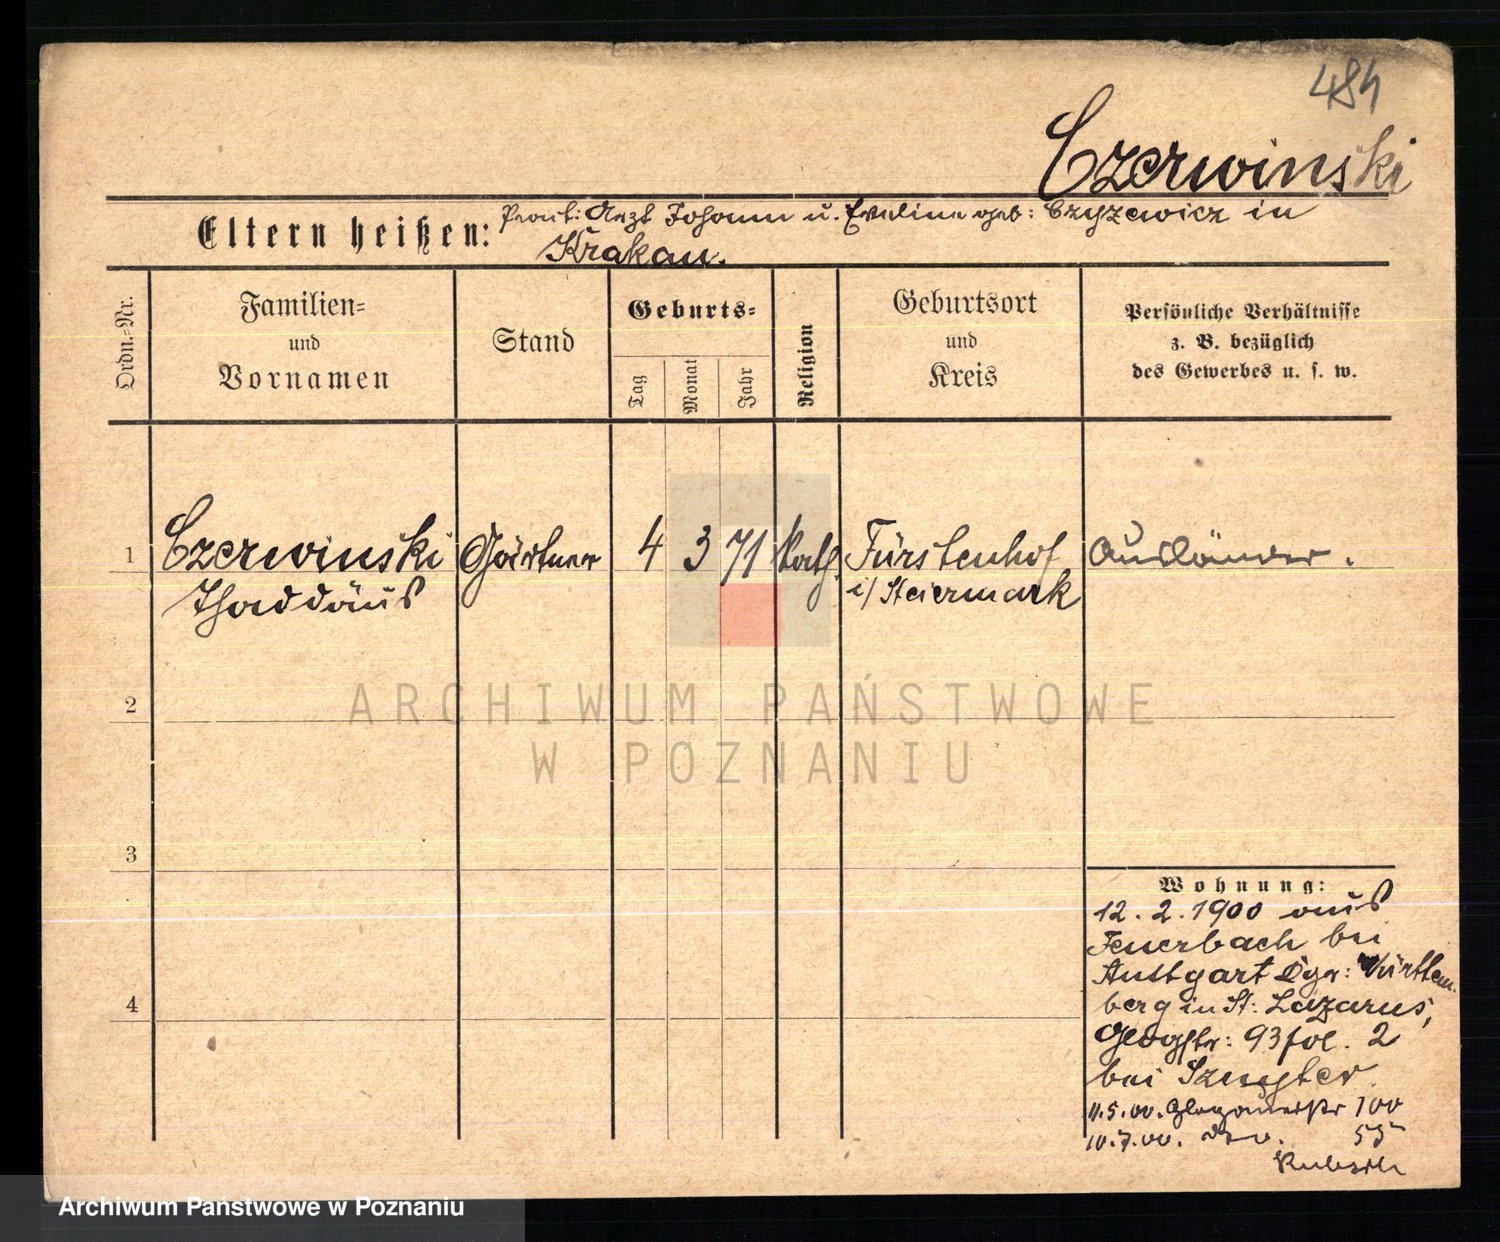 484
Czerwinski
Eltern heißen: Arzt Johann u. Eveline geb: Czyzewicz in
Krakau.
Ordn.-Nr.
Familien-
und
Vornamen
Stand
Geburts-
Tag
Monat
Jahr
Religion
Geburtsort
und
Kreis
Persönliche Verhältnisse
z. B. bezüglich
des Gewerbes u. s. w.
1 Czerwinski Gärtner 4 3 71 kath. Fürstenhof Ausländer.
Thaddäus i/Steiermark
ARCHIWUM PAŃSTWOWE
W POZNANIU
2
3
4
Wohnung:
12.2.1900 aus
Feuerbach bei
Stuttgart Württem-
berg in St: Lazarus,
93 fol. 2
bei
11.5.00. 100
10.7.00. 55
Archiwum Państwowe w Poznaniu